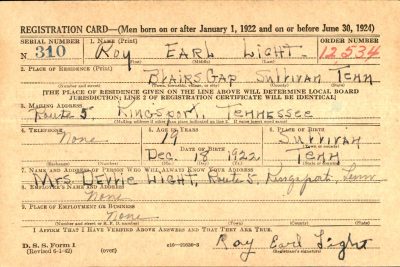 REGISTRATION CARD—(Men born on or after January 1, 1922 and on or before June 30, 1924)
SERIAL NUMBER 1. NAME (Print) ORDER NUMBER
N 310 Roy EARL LIGHT. 12534
(First) (Middle) (Last)
2. PLACE OF RESIDENCE (Print)
BLAIRS GAP SULLIVAN TENN
(Number and street) (Town, township, village, or city) (County) (State)
[THE PLACE OF RESIDENCE GIVEN ON THE LINE ABOVE WILL DETERMINE LOCAL BOARD
JURISDICTION; LINE 2 OF REGISTRATION CERTIFICATE WILL BE IDENTICAL]
3. MAILING ADDRESS
Route 5 Kingsport, TENNESSEE
(Mailing address if other than place indicated on line 2. If same insert word same)
4. TELEPHONE 5. AGE IN YEARS 6. PLACE OF BIRTH
None 19 Sullivan
DATE OF BIRTH (Town or county)
Dec. 18 1922 TENN
(Exchange) (Number) (Mo.) (Day) (Yr.) (State or country)
7. NAME AND ADDRESS OF PERSON WHO WILL ALWAYS KNOW YOUR ADDRESS
Light, Route 5, Kingsport, Tenn
8. EMPLOYER'S NAME AND ADDRESS
None
9. PLACE OF EMPLOYMENT OR BUSINESS
None
(Number and street or R. F. D. number) (Town) (County) (State)
I AFFIRM THAT I HAVE VERIFIED ABOVE ANSWERS AND THAT THEY ARE TRUE.
D. S. S. Form 1
(Revised 6-1-42) (over) Roy Earl Light
(Registrant's signature)